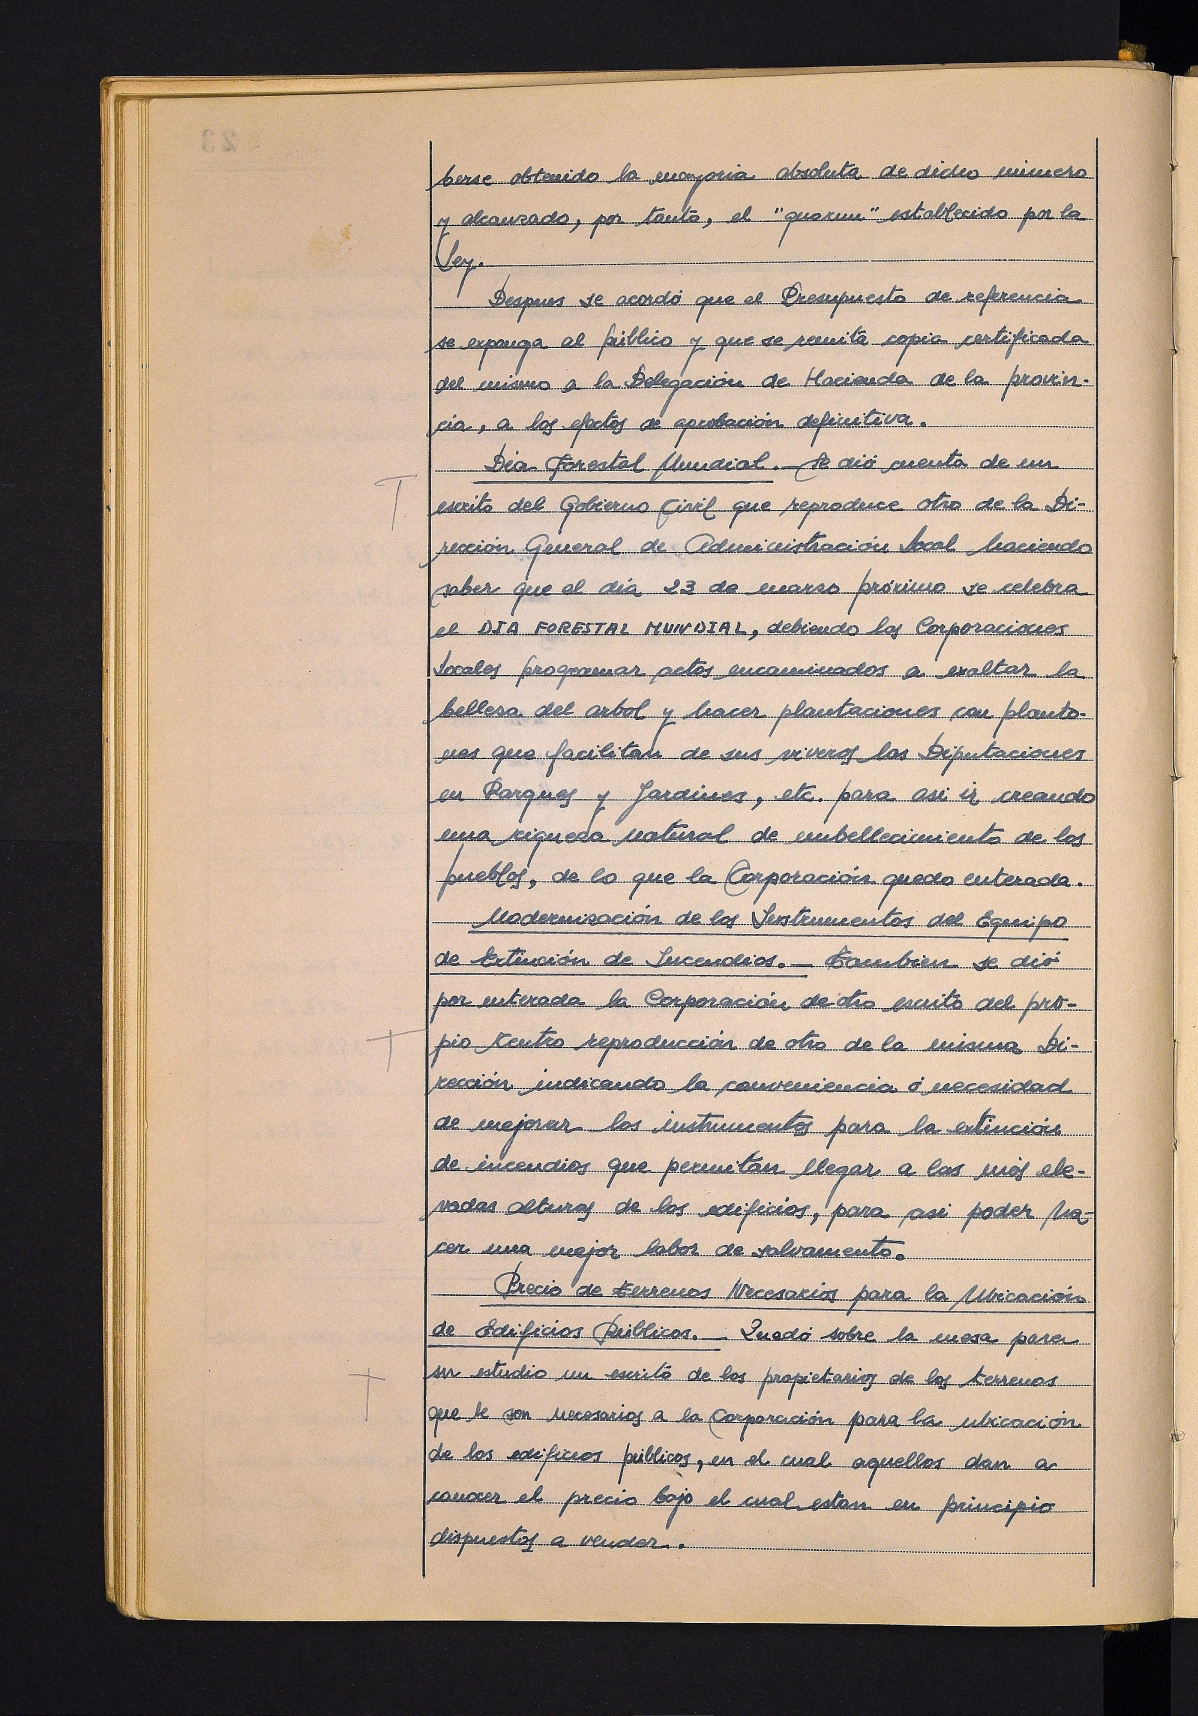 berse obtenido la mayoria absoluta de dicho número
y alcanzado, por tanto, el "quorum" establecido por la
Ley.
Despues se acordó que el Presupuesto de referencia
se exponga al público y que se remita copia certificada
del mismo a la Delegación de Hacienda de la provin-
cia, a los efectos de aprobación definitiva.
Día Forestal Mundial.— Se dió cuenta de un
escrito del Gobierno Civil que reproduce otro de la Di-
rección General de Administración Local haciendo
saber que el día 23 de marzo próximo se celebra
el DIA FORESTAL MUNDIAL, debiendo las Corporaciones
Locales programar actos encaminados a exaltar la
belleza del arbol y hacer plantaciones con planto-
nes que facilitan de sus viveros las Diputaciones
en Parques y Jardines, etc. para asi ir creando
una riqueza natural de embellecimiento de los
pueblos, de lo que la Corporación quedo enterada.
Modernización de los Instrumentos del Equipo
de Extinción de Incendios.— Tambien se dió
por enterada la Corporación de otro escrito del pro-
pio Centro reproducción de otro de la misma Di-
rección indicando la conveniencia ó necesidad
de mejorar los instrumentos para la extinción
de incendios que permitan llegar a las más ele-
vadas alturas de los edificios, para asi poder ha-
cer una mejor labor de salvamento.
Precio de Terrenos Necesarios para la Ubicación
de Edificios Públicos.— Quedó sobre la mesa para
su estudio un escrito de los propietarios de los terrenos
que le son necesarios a la Corporación para la ubicación
de los edificios públicos, en el cual aquellos dan a
conocer el precio bajo el cual estan en principio
dispuestos a vender.